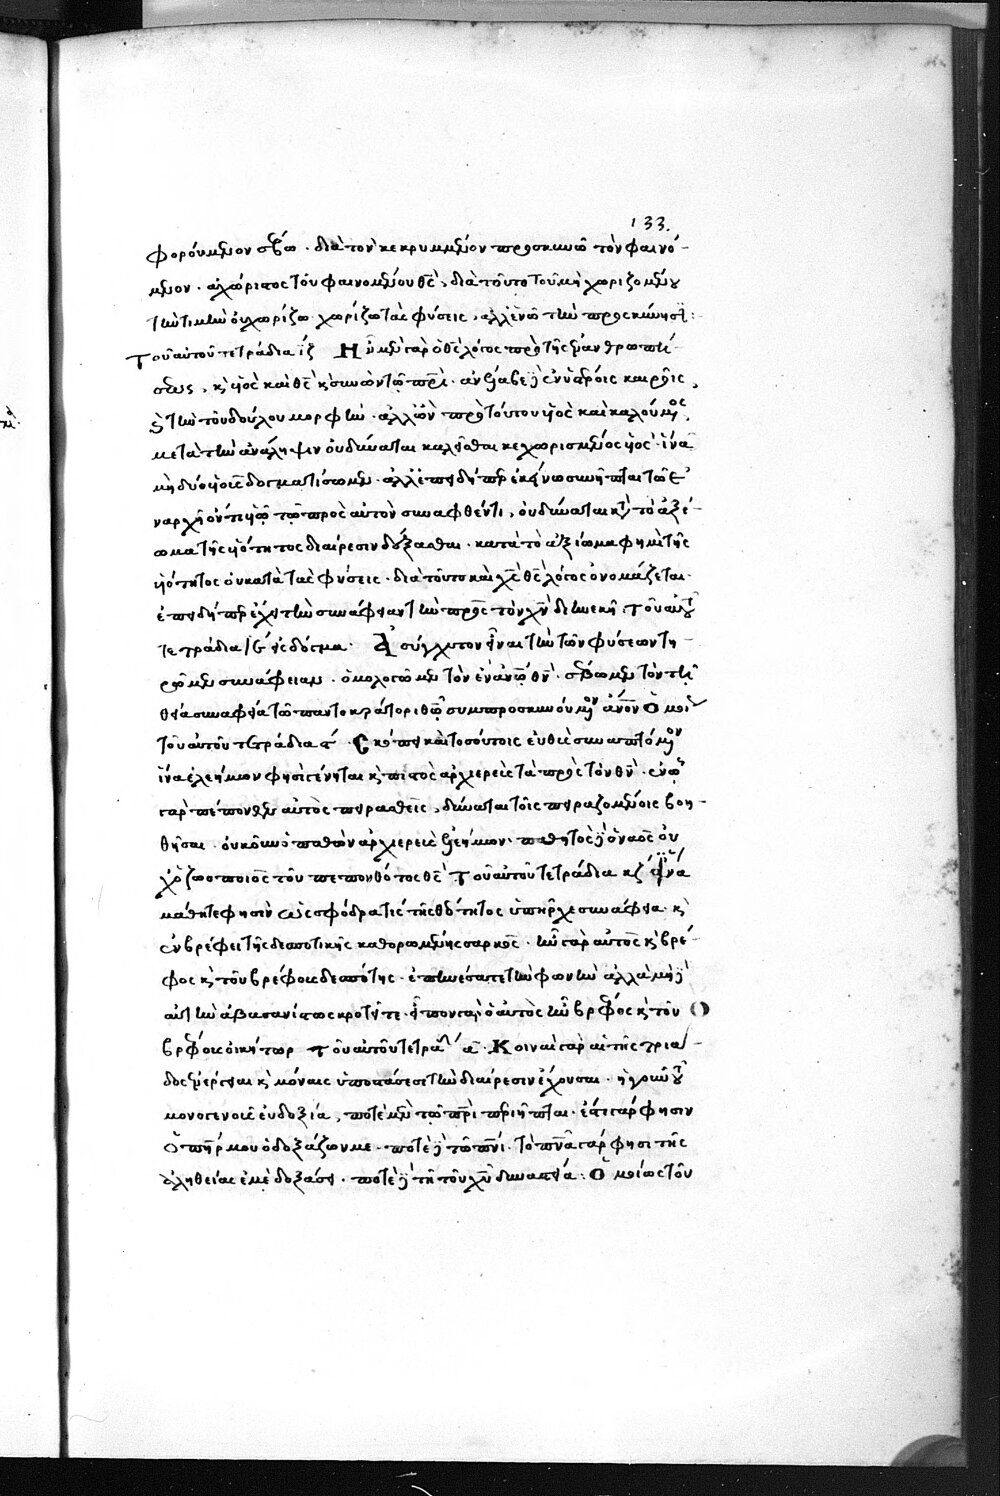 133.
φορούμενον σέβω · διὰ τὸν κεκρυμμένον προσκυνῶ τὸν φαινό-
μενον · ἀχώριστος τοῦ φαινομένου θς · διὰ τοῦτο τοῦ μὴ χωριζομένου
τὴν τιμὴν οὐ χωρίζω · χωρίζω τὰς φύσεις, ἀλλ' ἑνῶ τὴν προσκύνησιν :
Τοῦ αὐτοῦ τετράδια ιζ Ἦν μὲν γὰρ ὁ θς λόγος πρὸ τῆς ἐνανθρωπή-
σεως, κ υἱὸς καὶ θς κ συνὼν τῷ πρι · ἀνέλαβε δὲ ἐν ὑστέροις καιροῖς
τὴν τοῦ δούλου μορφήν · ἀλλ' ὢν πρὸ τούτου υἱὸς καὶ καλούμενος
μετὰ τὴν ἀνάληψιν οὐ δύναται καλεῖσθαι κεχωρισμένος υἱὸς · ἵνα
μὴ δύο υἱοὺς δογματίσωμεν · ἀλλ' ἐπειδήπερ ἐκείνω συνῆπται τῷ ἐ-
ναρχῇ ὄντι υἱῷ τῷ πρὸς αὐτὸν συναφθέντι, οὐ δύναται κατὰ τὸ ἀξί-
ωμα τῆς υἱότητος διαίρεσιν δέξασθαι · κατὰ τὸ ἀξίωμα φημὶ τῆς
υἱότητος οὐ κατὰ τὰς φύσεις · διὰ τοῦτο καὶ χς θς λόγος ὀνομάζεται ·
ἐπειδήπερ ἔχει τὴν συνάφειαν τὴν πρὸς τὸν χν διηνεκῆ · Τοῦ αὐτοῦ
τετράδια ιε εἰς δόγμα · Ἀσύγχυτον εἶναι τὴν τῶν φύσεων τη-
ρῶμεν συνάφειαν · ὁμολογῶμεν τὸν ἐν ἀνω θν · σέβωμεν τὸν τῇ
θεία συναφεία τῷ παντοκράτορι θω συμπροσκυνούμενον ἀνον Ὁμοί
τοῦ αὐτοῦ τετράδια ϛ · Σκόπει καὶ τοσούτοις εὐθὺς συναπτόμενον
ἵνα ἐλεήμων φησὶ γένηται κ πιστὸς ἀρχιερεὺς τὰ πρὸς τὸν θν · ἐν ᾧ
γὰρ πέπονθεν αὐτὸς πειρασθεὶς, δύναται τοῖς πειραζομένοις βοη-
θῆσαι · οὐκοῦν ὁ παθὼν ἀρχιερεὺς ἐλεήμων · παθητὸς δὲ ὁ ναὸς οὐ
χ' ὁ ζωοποιὸς τοῦ πεπονθότος θς Τοῦ αὐτοῦ τετράδια κζ ἵνα
μάθητε φησὶν ὡς σφόδρα τις τῆς θεότητος ὑπῆρχε συνάφεια · κ
ἐν βρέφει τῆς δεσποτικῆς καθορωμένης σαρκὸς · ἦν γὰρ αὐτὸς κ βρέ-
φος κ τοῦ βρέφους δεσπότης · ἐπηνέσατε τὴν φωνὴν ἀλλὰ μὴ δὲ
αὐτὴν ἀβασανίστως κροτεῖτε · εἶπον γὰρ, ὁ αὐτὸς ἦν βρέφος κ τοῦ
βρέφους οἰκήτωρ Τοῦ αὐτοῦ τετρα α · Κοιναὶ γὰρ αἱ τῆς τριά-
δος ἐνέργειαι κ μόναις ὑποστάσεσι τὴν διαίρεσιν ἔχουσαι · ἡ γοῦν τοῦ
μονογενοῦς εὐδοξία, ποτὲ μὲν τῷ πρι περιῆπται · ἔστι γάρ φησιν
ὁ πηρ μου ὁ δοξάζων με · ποτὲ δὲ τῷ πνι · τὸ πνα γάρ φησι τῆς
ἀληθείας ἐμὲ δοξάσει · ποτὲ δὲ τῇ τοῦ χυ δυναστεία : Ὁμοίως τοῦ